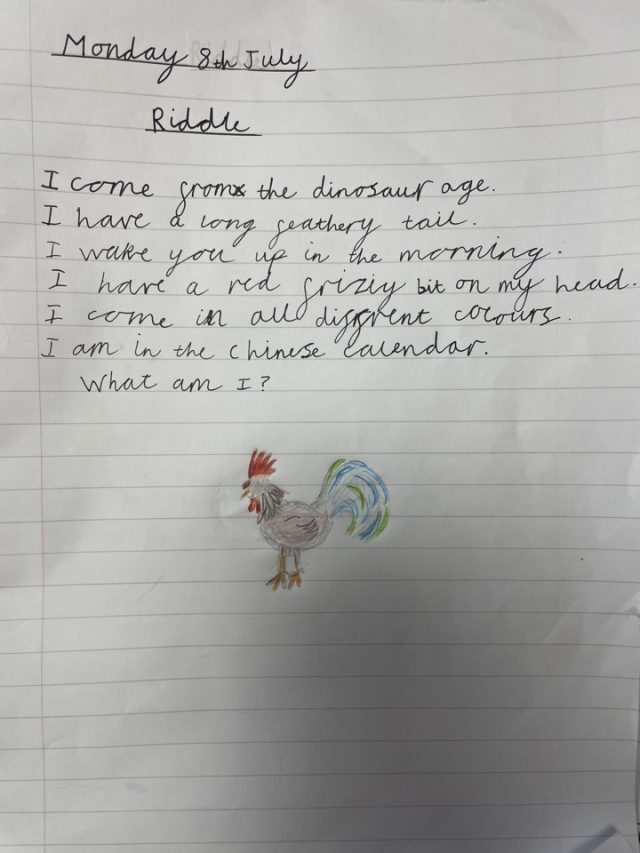 Monday 8th July
Riddle
I come from the dinosaur age.
I have a long feathery tail.
I wake you up in the morning.
I have a red friziy bit on my head.
I come in all diffrent colours.
I am in the Chinese calendar.
What am I?